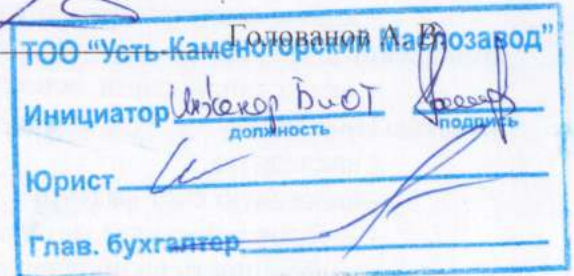 Голованов А. В.
ТОО "Усть-Каменогорский Маслозавод"
Инициатор Инженер БиОТ
должность подпись
Юрист
Глав. бухгалтер